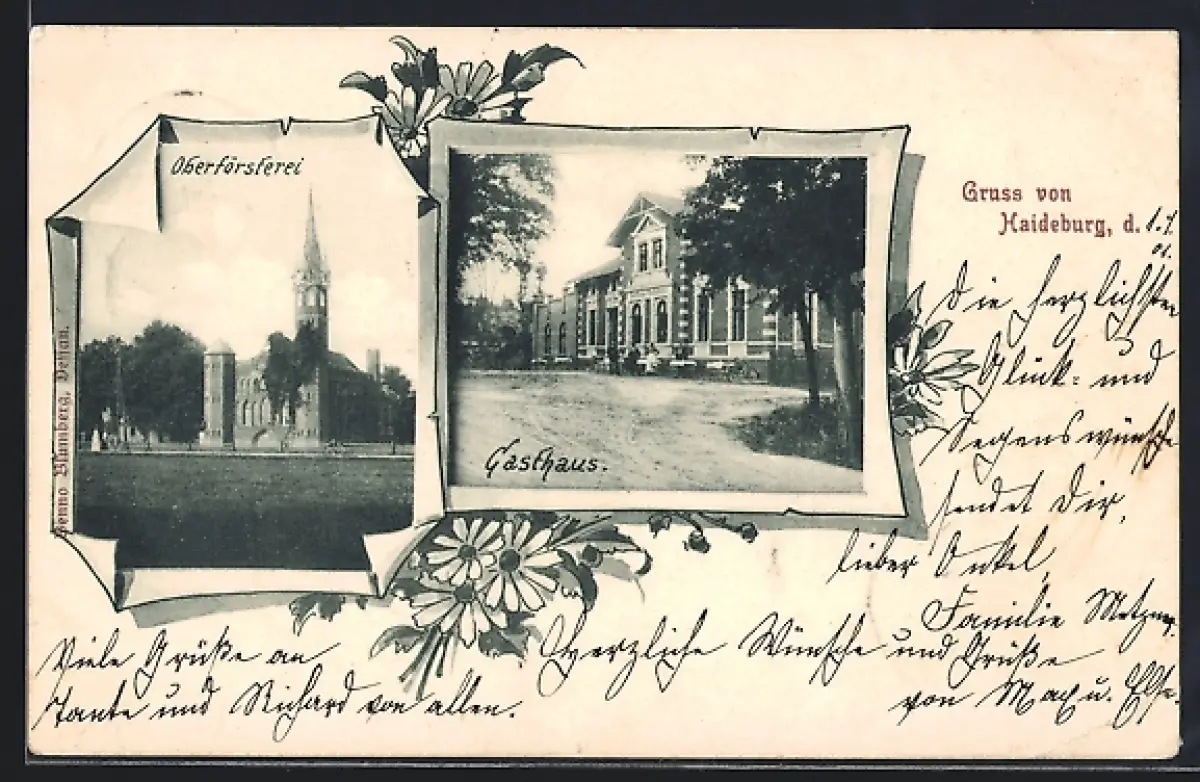 Oberförsterei
Gasthaus.
Benno Blumberg, Dessau.
Gruss von
Haideburg, d. 1.1.
01.
Die herzlichsten
Glück- und
Segenswünsche
sendet Dir,
lieber Onkel,
Familie Metzner.
Herzliche Wünsche und Grüße
von Max u. Else.
Viele Grüße an
Tante und Richard von allen.